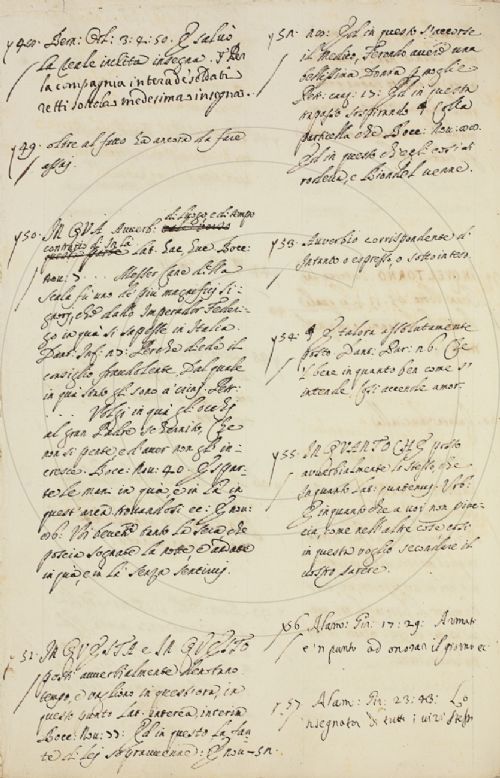 Bern: Orl: 3: 4: 50. E salvò
la Reale invitta insegna. I Per
la compagnia intera de soldati
retti sotto la medesima insegna.
y 49. oltre al fatto ha ancora da fare
assaj.
y 50. IN QVA Avverb: di luogo, e di tempo
contrario di In là
Lat: hac, huc Bocc:
Nou: 7. Messer Cane della
Scala fu uno de più magnifici Si-
gnorj, che dallo Imperador Feder-
go in quà si sapesse in Italia.
Dant: Inf: 27: Perchè diede il
consiglio fraudolente, Dal quale
in quà stato gli sono a' crinj. Petr:
. . . . Volgi in quà gli occhi
al gran Padre schernito, Che
non si pente, e d'amor non gli in-
cresce. Bocc: Nou: 40. E spar-
te le mani in quà, e in là in
questa arca trovandosi ec: E nou:
Voi bevete tanto la sera che
poscia sognate la notte, e andate
in quà, e in là senza sentirvi.
51: IN QVESTA e IN QVESTO
posti avverbialmente denotano
tempo, e vagliono in quest'ora, in
questo punto Lat: interea, interim
Bocc: Nou: 77: Ed in questo la fan-
te di lej sopravvenne: E nou =
nou: Ed in questo s'accorse
il Medico, Ferondo avere una
bellissima Donna per moglie
Petr: canz: 17: Ed in questa
trapasso sospirando E colla
particella che Bocc: Nou:
Ed in questo che egli così si
rodeva, e Biondel venne.
y 53. Avverbio corrispondente di
Intanto o espresso, o sottointeso.
y 54. E talora assolutamente
posto Dant: Par: 26. Che
'l bene in quanto ben come s'
intende, Così accende amor.
y 55. IN QVANTO CHE posto
avverbialmente lo stesso, che
Inquanto Lat: quatenus.
E inquanto che a voi non piac-
cia, come nell'altre cose così
in questa voglio secondare il
vostro parere.
y 56 Alam: Gir: 17: 29: Armato
e 'n punto ad onorar il giorno ec:
y. 57 Alam: Gir: 23: 43: Lo
'nsegnator di tutti i vizi stesso